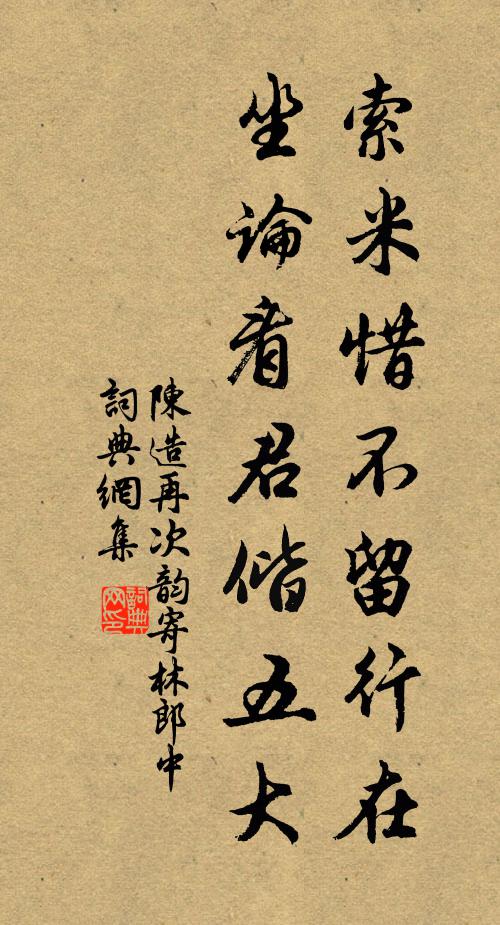 索米惜不留行在
坐論看君偕五大
陳造再次韵寄林郎中
詞典網集
詞典网印